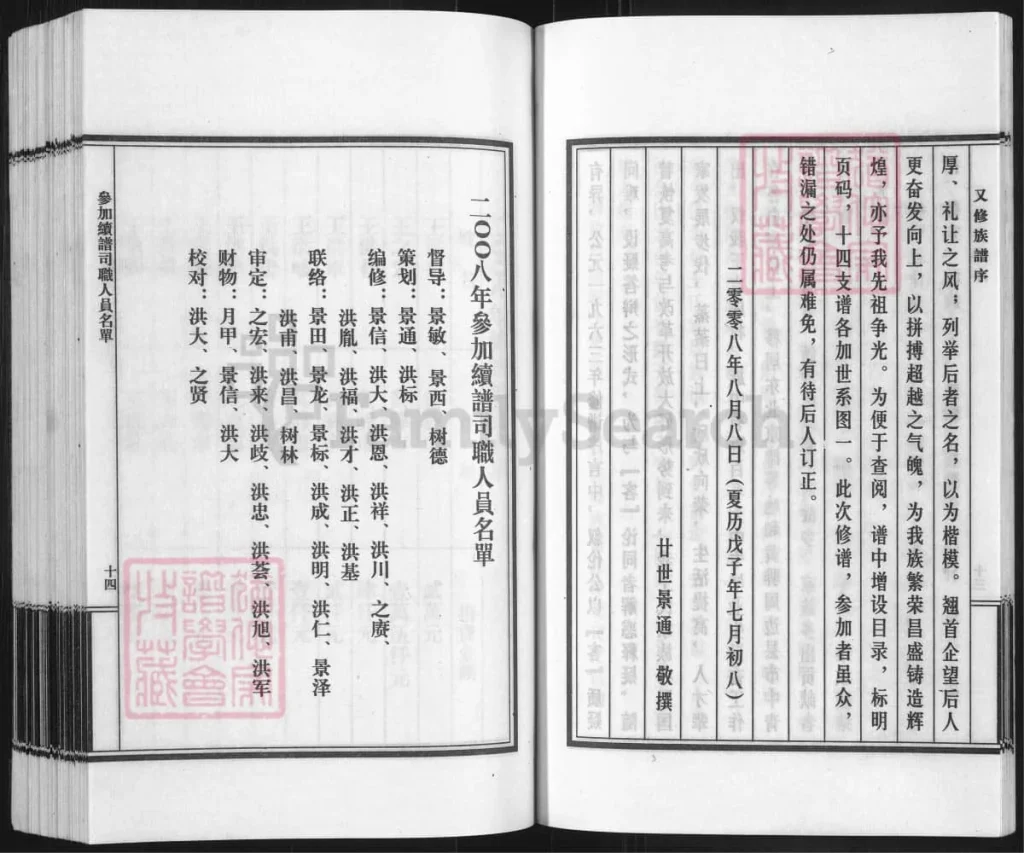 又修族譜序
厚、礼让之风；列举后者之名，以为楷模。翘首企望后人
更奋发向上，以拼搏超越之气魄，为我族繁荣昌盛铸造辉
煌，亦予我先祖争光。为便于查阅，谱中增设目录，标明
页码，十四支谱各加世系图一。此次修谱，参加者虽众，
错漏之处仍属难免，有待后人订正。
二零零八年八月八日（夏历戊子年七月初八）
廿世景通 敬撰
十三
二〇〇八年參加續譜司職人員名單
督导：景敏、景西、树德
策划：景通、洪标
编修：景信、洪大、洪恩、洪祥、洪川、之赓、
洪胤、洪福、洪才、洪正、洪基
联络：景田、景龙、景标、洪成、洪明、洪仁、景泽
洪甫、洪昌、树林
审定：之宏、洪来、洪歧、洪忠、洪荟、洪旭、洪军
财物：月甲、景信、洪大
校对：洪大、之贤
參加續譜司職人員名單
十四
FamilySearch